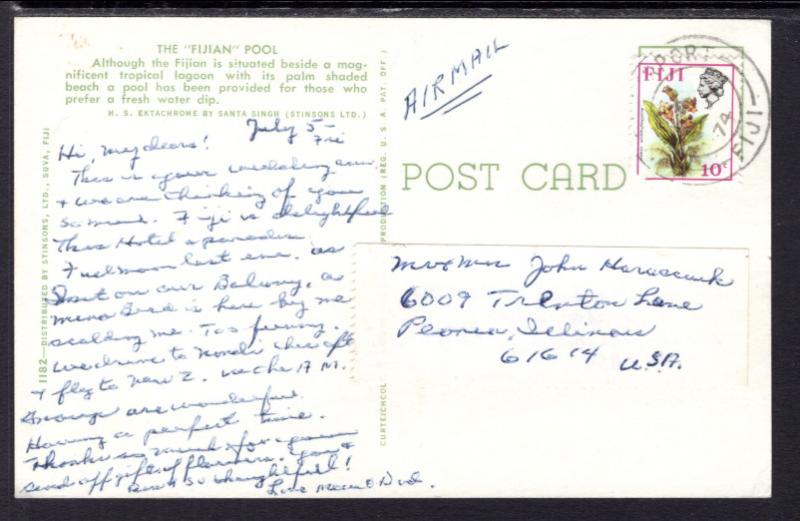 THE "FIJIAN" POOL
Although the Fijian is situated beside a mag-
nificent tropical lagoon with its palm shaded
beach a pool has been provided for those who
prefer a fresh water dip.
H. S. EKTACHROME BY SANTA SINGH (STINSONS LTD.)
July 5-
Fri
Hi, my dears!
This is your wedding
+ we are thinking of you
so much. Fiji is delightful
This Hotel a paradise.
Full moon last eve. as
I sat on our Balcony, a
Mina Bird is here by me
scolding me. Too funny.
We drive to Nandi this aft
+ fly to New Z. in the A M.
Group are wonderful.
Having a perfect time.
Thanks so much for your
send off gift of flowers. You
so thoughtful!
Love
1182—DISTRIBUTED BY STINSONS, LTD., SUVA, FIJI
CURTEICHCOL
PRODUCTION (REG. U. S. A. PAT. OFF.)
AIRMAIL
POST CARD
FIJI
10c
PORT
74
FIJI
Mr & Mrs John
6009 Trenton Lane
Peoria, Illinois
61614 U.S.A.